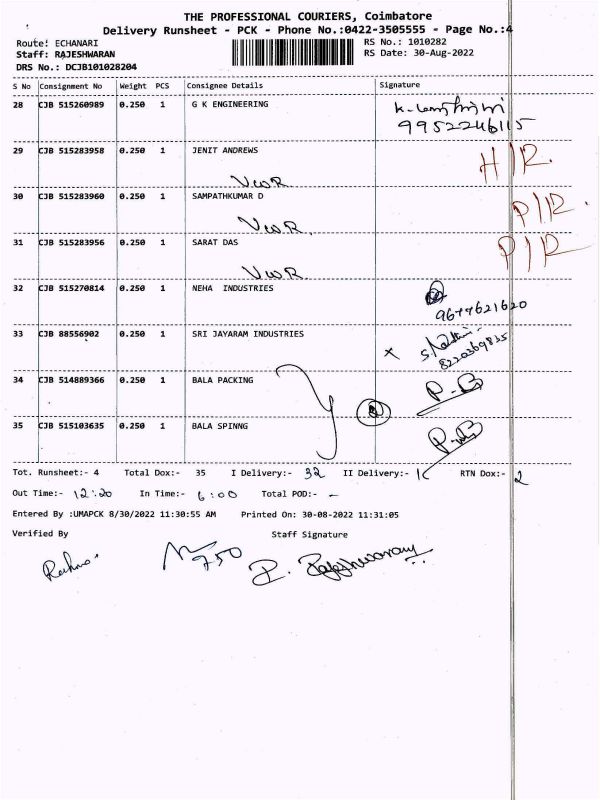 THE PROFESSIONAL COURIERS, Coimbatore
Delivery Runsheet - PCK - Phone No.:0422-3505555 - Page No.:4
Route: ECHANARI RS No.: 1010282
Staff: RAJESHWARAN RS Date: 30-Aug-2022
DRS No.: DCJB101028204
S No Consignment No Weight PCS Consignee Details Signature
28 CJB 515260989 0.250 1 G K ENGINEERING
9952246115
29 CJB 515283958 0.250 1 JENIT ANDREWS H/R.
30 CJB 515283960 0.250 1 SAMPATHKUMAR D P/R.
31 CJB 515283956 0.250 1 SARAT DAS P/R
32 CJB 515270814 0.250 1 NEHA INDUSTRIES
9677621620
33 CJB 88556902 0.250 1 SRI JAYARAM INDUSTRIES
x 8220369835
34 CJB 514889366 0.250 1 BALA PACKING
35 CJB 515103635 0.250 1 BALA SPINNG
Tot. Runsheet:- 4 Total Dox:- 35 I Delivery:- 32 II Delivery:- RTN Dox:- 2
Out Time:- 12:20 In Time:- 6:00 Total POD:- -
Entered By :UMAPCK 8/30/2022 11:30:55 AM Printed On: 30-08-2022 11:31:05
Verified By Staff Signature
750 P. Rajeshwaran